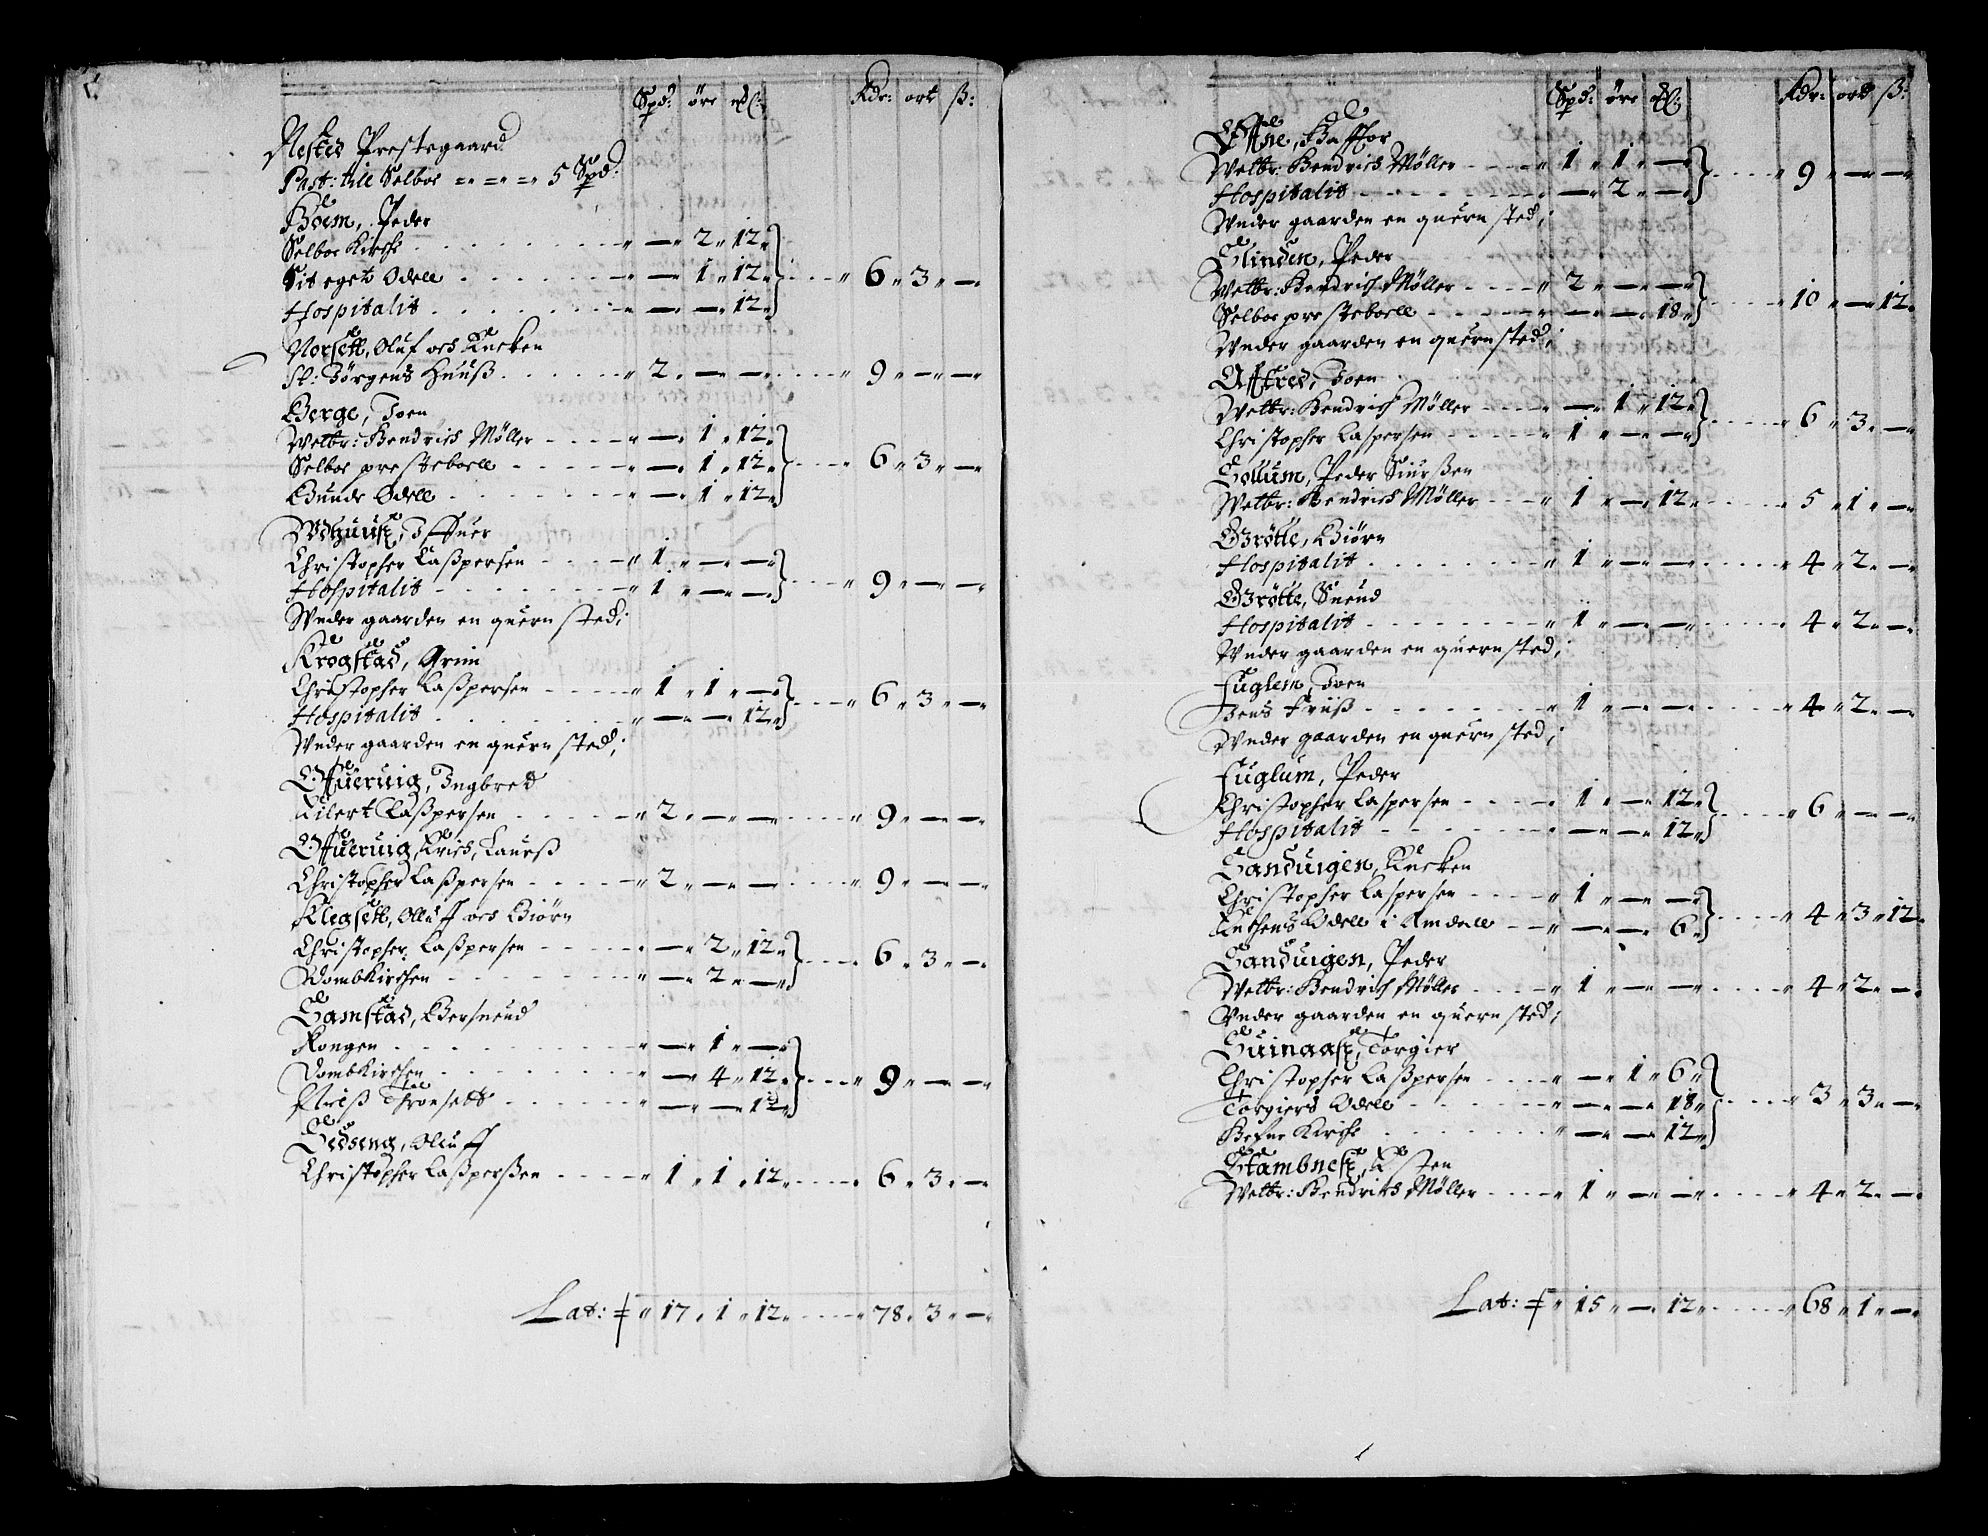 Spd: øre mℓ: Rdr: ort ß:
Nested Prestegaard
Past: till Selboe =„=„=„ 5 Spd:
Boem, Peder
Selboe Kirche „ — „ 2 „ 12 „
Sit eget Odell „ — „ 1 „ 12 „ 6 „ 3 „ —
Hospitalit „ — „ — „ 12 „
Norsett, Oluf och Encken
St: Jørgens Huuß „ 2 „ — „ — „ 9 „ — „ —
Berge, Joen
Welbr: Hendrich Møller „ — „ 1 „ 12 „
Selboe presteboell „ — „ 1 „ 12 „ 6 „ 3 „ —
Bunde Odell „ — „ 1 „ 12 „
Christopher Caßpersen „ 1 „ — „ —
Hospitalit „ 1 „ — „ — „ 9 „ — „ —
Vnder gaarden en quern sted;
Krogstad, Grim
Christopher Caßpersen „ 1 „ 1 „ —
Hospitalit „ — „ — „ 12 „ 6 „ 3 „ —
Vnder gaarden en quern sted;
Offueruig, Ingbret
Eilert Caßpersen „ 2 „ — „ — „ 9 „ — „ —
Offueruig, Erich, Laurß
Christopher Caßpersen „ 2 „ — „ — „ 9 „ — „ —
Klegsett, Olluff och Biørn
Christopher Caßpersen „ — „ 2 „ 12 „
Dombkirchen „ — „ 2 „ — „ 6 „ 3 „ —
Samstad, Bersuend
Kongen „ — „ 1 „ —
Dombkirchen „ — „ 4 „ 12 „ 9 „ — „ —
Niß Thronsett „ — „ — „ 12 „
Olluff
Christopher Caßperßen „ 1 „ 1 „ 12 „ 6 „ 3 „ —
Lat: „ 17 „ 1 „ 12 „ 78 „ 3 „ —
Spd: øre mℓ: Rdr: ort ß:
Haffor
Welbr: Hendrich Møller „ 1 „ 1 „ —
Hospitalit „ — „ 2 „ — „ 9 „ — „ —
Vnder gaarden en quern sted;
Slinden, Peder
Welbr: Hendrich Møller „ 2 „ — „ —
Selboe presteboell „ — „ — „ 18 „ 10 „ — „ 12
Vnder gaarden en quern sted;
Uffred, Joen
Welbr: Hendrich Møller „ — „ 1 „ 12 „
Christopher Caspersen „ 1 „ — „ — „ 6 „ 3 „ —
Sollum, Peder Siurßen
Welbr: Hendrich Møller „ 1 „ — „ 12 „ 5 „ 1 „ —
Grøtte, Biørn
Hospitalit „ 1 „ — „ — „ 4 „ 2 „ —
Grøtte, Suend
Hospitalit „ 1 „ — „ — „ 4 „ 2 „ —
Vnder gaarden en quern sted;
Fuglem, Joen
Jens Friiß „ 1 „ — „ — „ 4 „ 2 „ —
Vnder gaarden en quern sted;
Fuglum, Peder
Christopher Caspersen „ 1 „ — „ 12 „
Hospitalit „ — „ — „ 12 „ 6 „ — „ —
Sanduigen, Encken
Christopher Caspersen „ 1 „ — „ —
Enchens Odell i Amdall „ — „ — „ 6 „ 4 „ 3 „ 12
Sanduigen, Peder
Welbr: Hendrich Møller „ 1 „ — „ — „ 4 „ 2 „ —
Vnder gaarden en quern sted;
Suinaaß, Torgier
Christopher Caßpersen „ — „ 1 „ 6 „
Torgiers Odell „ — „ — „ 18 „ 3 „ 3 „ —
Hefne Kirche „ — „ — „ 12 „
Stambneß, Esten
Welbr: Hendrichs Møller „ 1 „ — „ — „ 4 „ 2 „ —
Lat: „ 15 „ — „ 12 „ 68 „ 1 „ —